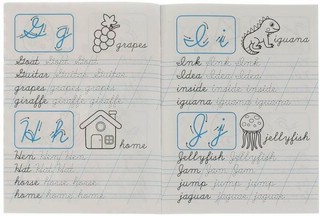 G g
grapes
Goat Goat Goat
Guitar Guitar Guitar
grapes grapes grapes
giraffe giraffe giraffe
H h
home
Hen Hen Hen
Hat Hat Hat
horse horse horse
home home home
I i
iguana
Ink Ink Ink
Idea Idea Idea
inside inside inside
iguana iguana iguana
J j
jellyfish
Jellyfish Jellyfish
Jam Jam Jam
jump jump jump
jaguar jaguar jaguar